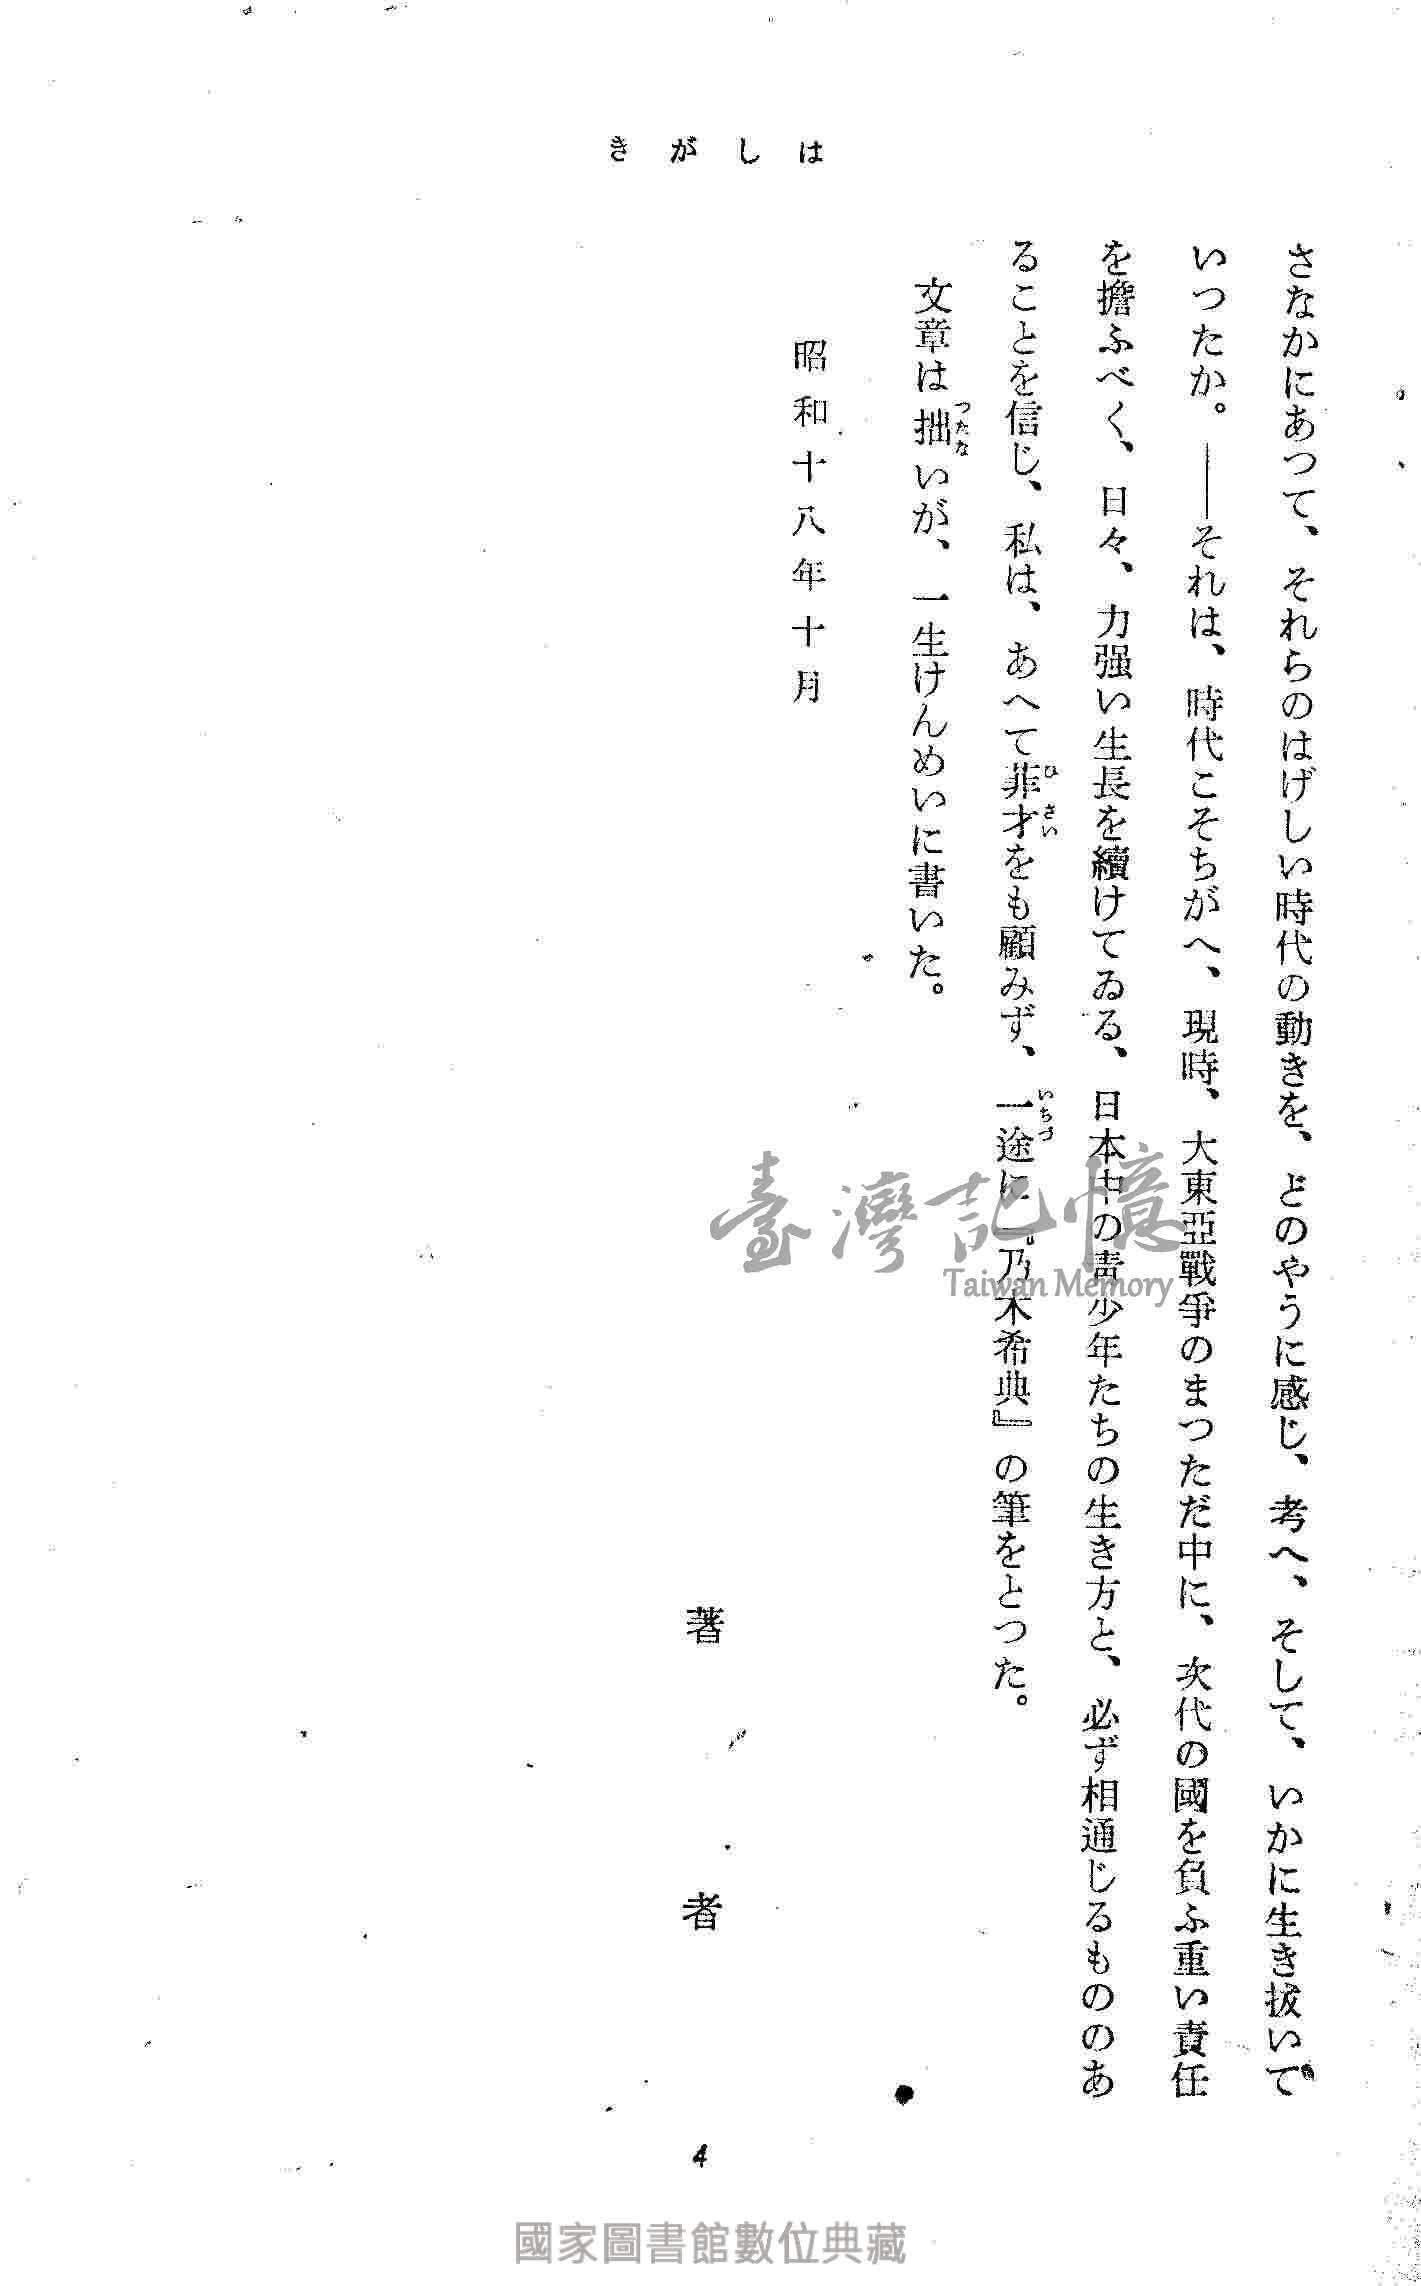 はしがき
さなかにあつて、それらのはげしい時代の動きを、どのやうに感じ、考へ、そして、いかに生き抜いて
いつたか。――それは、時代こそちがへ、現時、大東亞戰爭のまつただ中に、次代の國を負ふ重い責任
を擔ふべく、日々、力强い生長を續けてゐる、日本中の靑少年たちの生き方と、必ず相通じるもののあ
ることを信じ、私は、あへて菲才をも顧みず、一途に『乃木希典』の筆をとつた。
ひさい
いちづ
文章は拙いが、一生けんめいに書いた。
つたな
昭和十八年十月
著者
4
臺灣記憶
Taiwan Memory
國家圖書館數位典藏